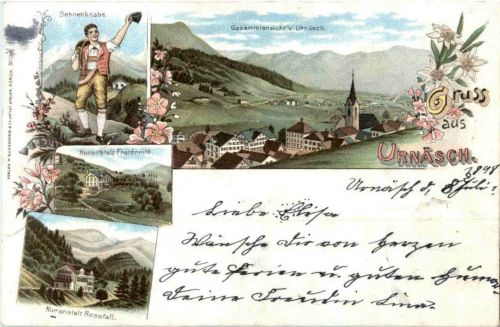 Sennenknabe.
Gesammtansicht v. Urnäsch.
Gruss
aus
URNÄSCH.
Kuranstalt Fraternité.
Kuranstalt Rossfall.
Urnäsch d. 8 Juli.
Liebe Elisa
Wünsche Dir von Herzen
gute Ferien u guten Humor
Deine Freundin Lina.